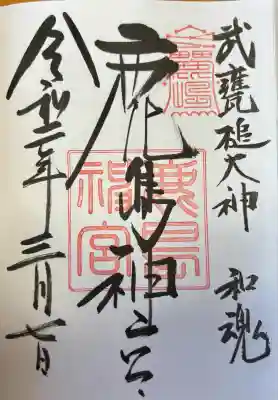 武甕槌大神 和魂
鹿島神宮
鹿島
神宮
令和二年三月七日